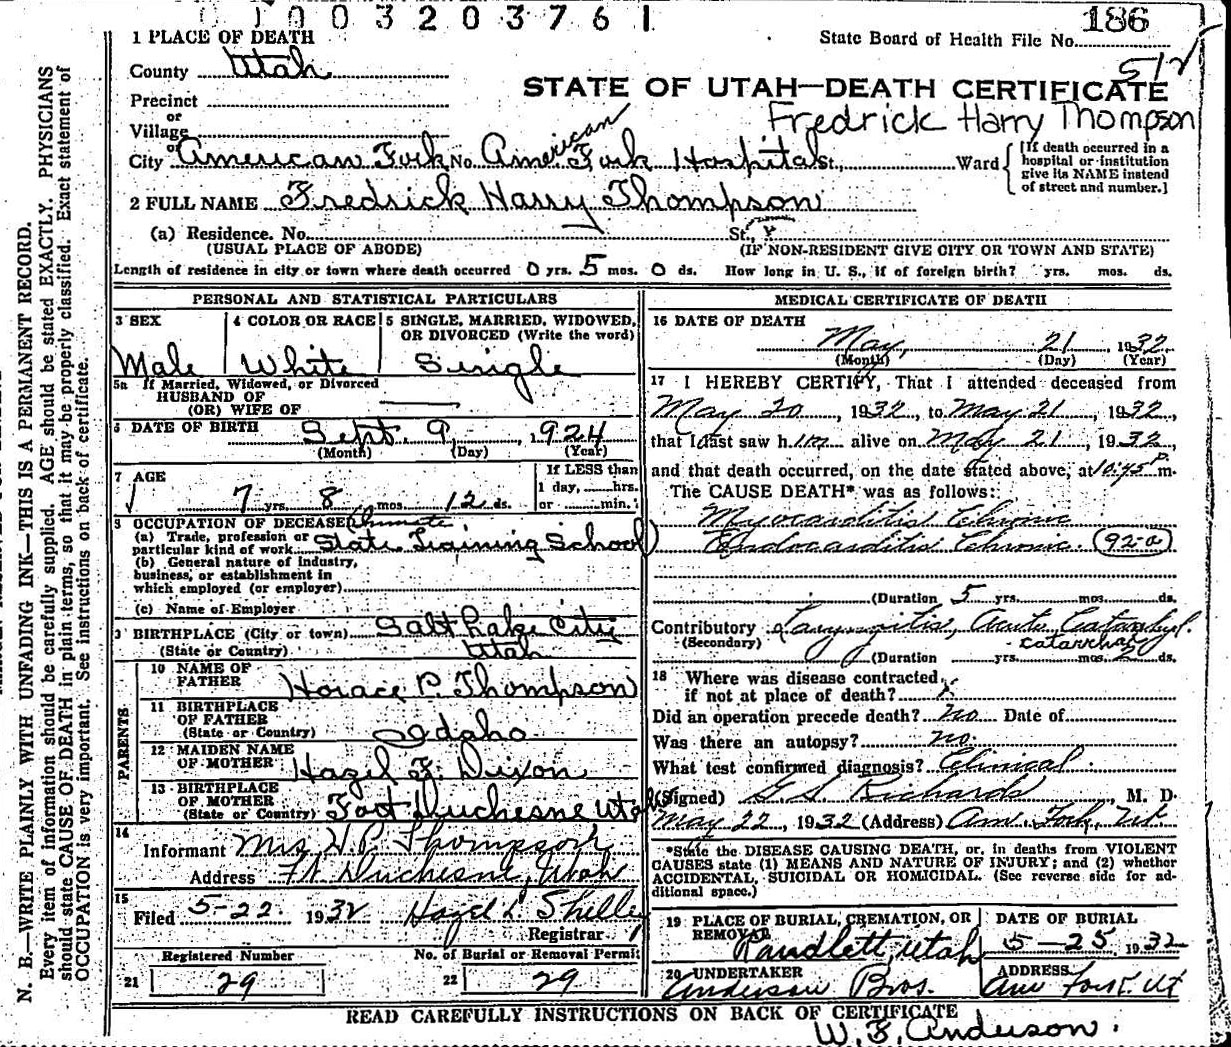 0 1 0 0 3 2 0 3 7 6 1
186
1 PLACE OF DEATH
State Board of Health File No.
County Utah
512
STATE OF UTAH—DEATH CERTIFICATE
Precinct
or
Village
Fredrick Harry Thompson
or
City American Fork No. American Fork Hospital St., Ward
[If death occurred in a hospital or institution give its NAME instead of street and number.]
2 FULL NAME Fredrick Harry Thompson
(a) Residence. No. St.,
(USUAL PLACE OF ABODE) (IF NON-RESIDENT GIVE CITY OR TOWN AND STATE)
Length of residence in city or town where death occurred 0 yrs. 5 mos. 0 ds. How long in U. S., if of foreign birth? yrs. mos. ds.
PERSONAL AND STATISTICAL PARTICULARS
3 SEX Male
4 COLOR OR RACE White
5 SINGLE, MARRIED, WIDOWED, OR DIVORCED (Write the word) Single
5a If Married, Widowed, or Divorced
HUSBAND OF
(OR) WIFE OF
6 DATE OF BIRTH Sept. 9, 1924
(Month) (Day) (Year)
7 AGE 7 yrs. 8 mos. 12 ds.
If LESS than
1 day, hrs.
or min.
8 OCCUPATION OF DECEASED Inmate
(a) Trade, profession or
particular kind of work State Training School
(b) General nature of Industry,
business, or establishment in
which employed (or employer)
(c) Name of Employer
9 BIRTHPLACE (City or town) Salt Lake City
(State or Country) Utah
PARENTS
10 NAME OF
FATHER Horace P. Thompson
11 BIRTHPLACE
OF FATHER
(State or Country) Idaho
12 MAIDEN NAME
OF MOTHER Hazel F. Dixon
13 BIRTHPLACE
OF MOTHER
(State or Country) Fort Duchesne Utah
14
Informant Mrs H P Thompson
Address Ft Duchesne, Utah
15
Filed 5-22 1932 Hazel L Shelley
Registrar
Registered Number
21 29
No. of Burial or Removal Permit
22 29
MEDICAL CERTIFICATE OF DEATH
16 DATE OF DEATH
May, 21 1932
(Month) (Day) (Year)
17 I HEREBY CERTIFY, That I attended deceased from
May 20, 1932, to May 21, 1932,
that I last saw him alive on May 21, 1932,
and that death occurred, on the date stated above, at 10:45 P. m.
The CAUSE DEATH* was as follows:
Myocarditis Chronic
Endocarditis Chronic 92-a
(Duration 5 yrs. mos. ds.
Contributory Laryngitis, Acute Catarrhal.
(Secondary) catarrhal
(Duration yrs. mos. 2 ds.
18 Where was disease contracted,
if not at place of death?
Did an operation precede death? no Date of
Was there an autopsy? no.
What test confirmed diagnosis? Clinical
(Signed) G. S. Richards, M. D.
May 22, 1932 (Address) Am. Fork, Ut
*State the DISEASE CAUSING DEATH, or, in deaths from VIOLENT
CAUSES state (1) MEANS AND NATURE OF INJURY; and (2) whether
ACCIDENTAL, SUICIDAL OR HOMICIDAL. (See reverse side for ad-
ditional space.)
19 PLACE OF BURIAL, CREMATION, OR
REMOVAL Randlett, Utah
DATE OF BURIAL
5-25 1932
20 UNDERTAKER
Anderson Bros.
ADDRESS
Am Fork Ut
READ CAREFULLY INSTRUCTIONS ON BACK OF CERTIFICATE
W. F. Anderson.
N. B.—WRITE PLAINLY WITH UNFADING INK—THIS IS A PERMANENT RECORD.
Every item of information should be carefully supplied. AGE should be stated EXACTLY. PHYSICIANS
should state CAUSE OF DEATH in plain terms, so that it may be properly classified. Exact statement of
OCCUPATION is very important. See instructions on back of certificate.